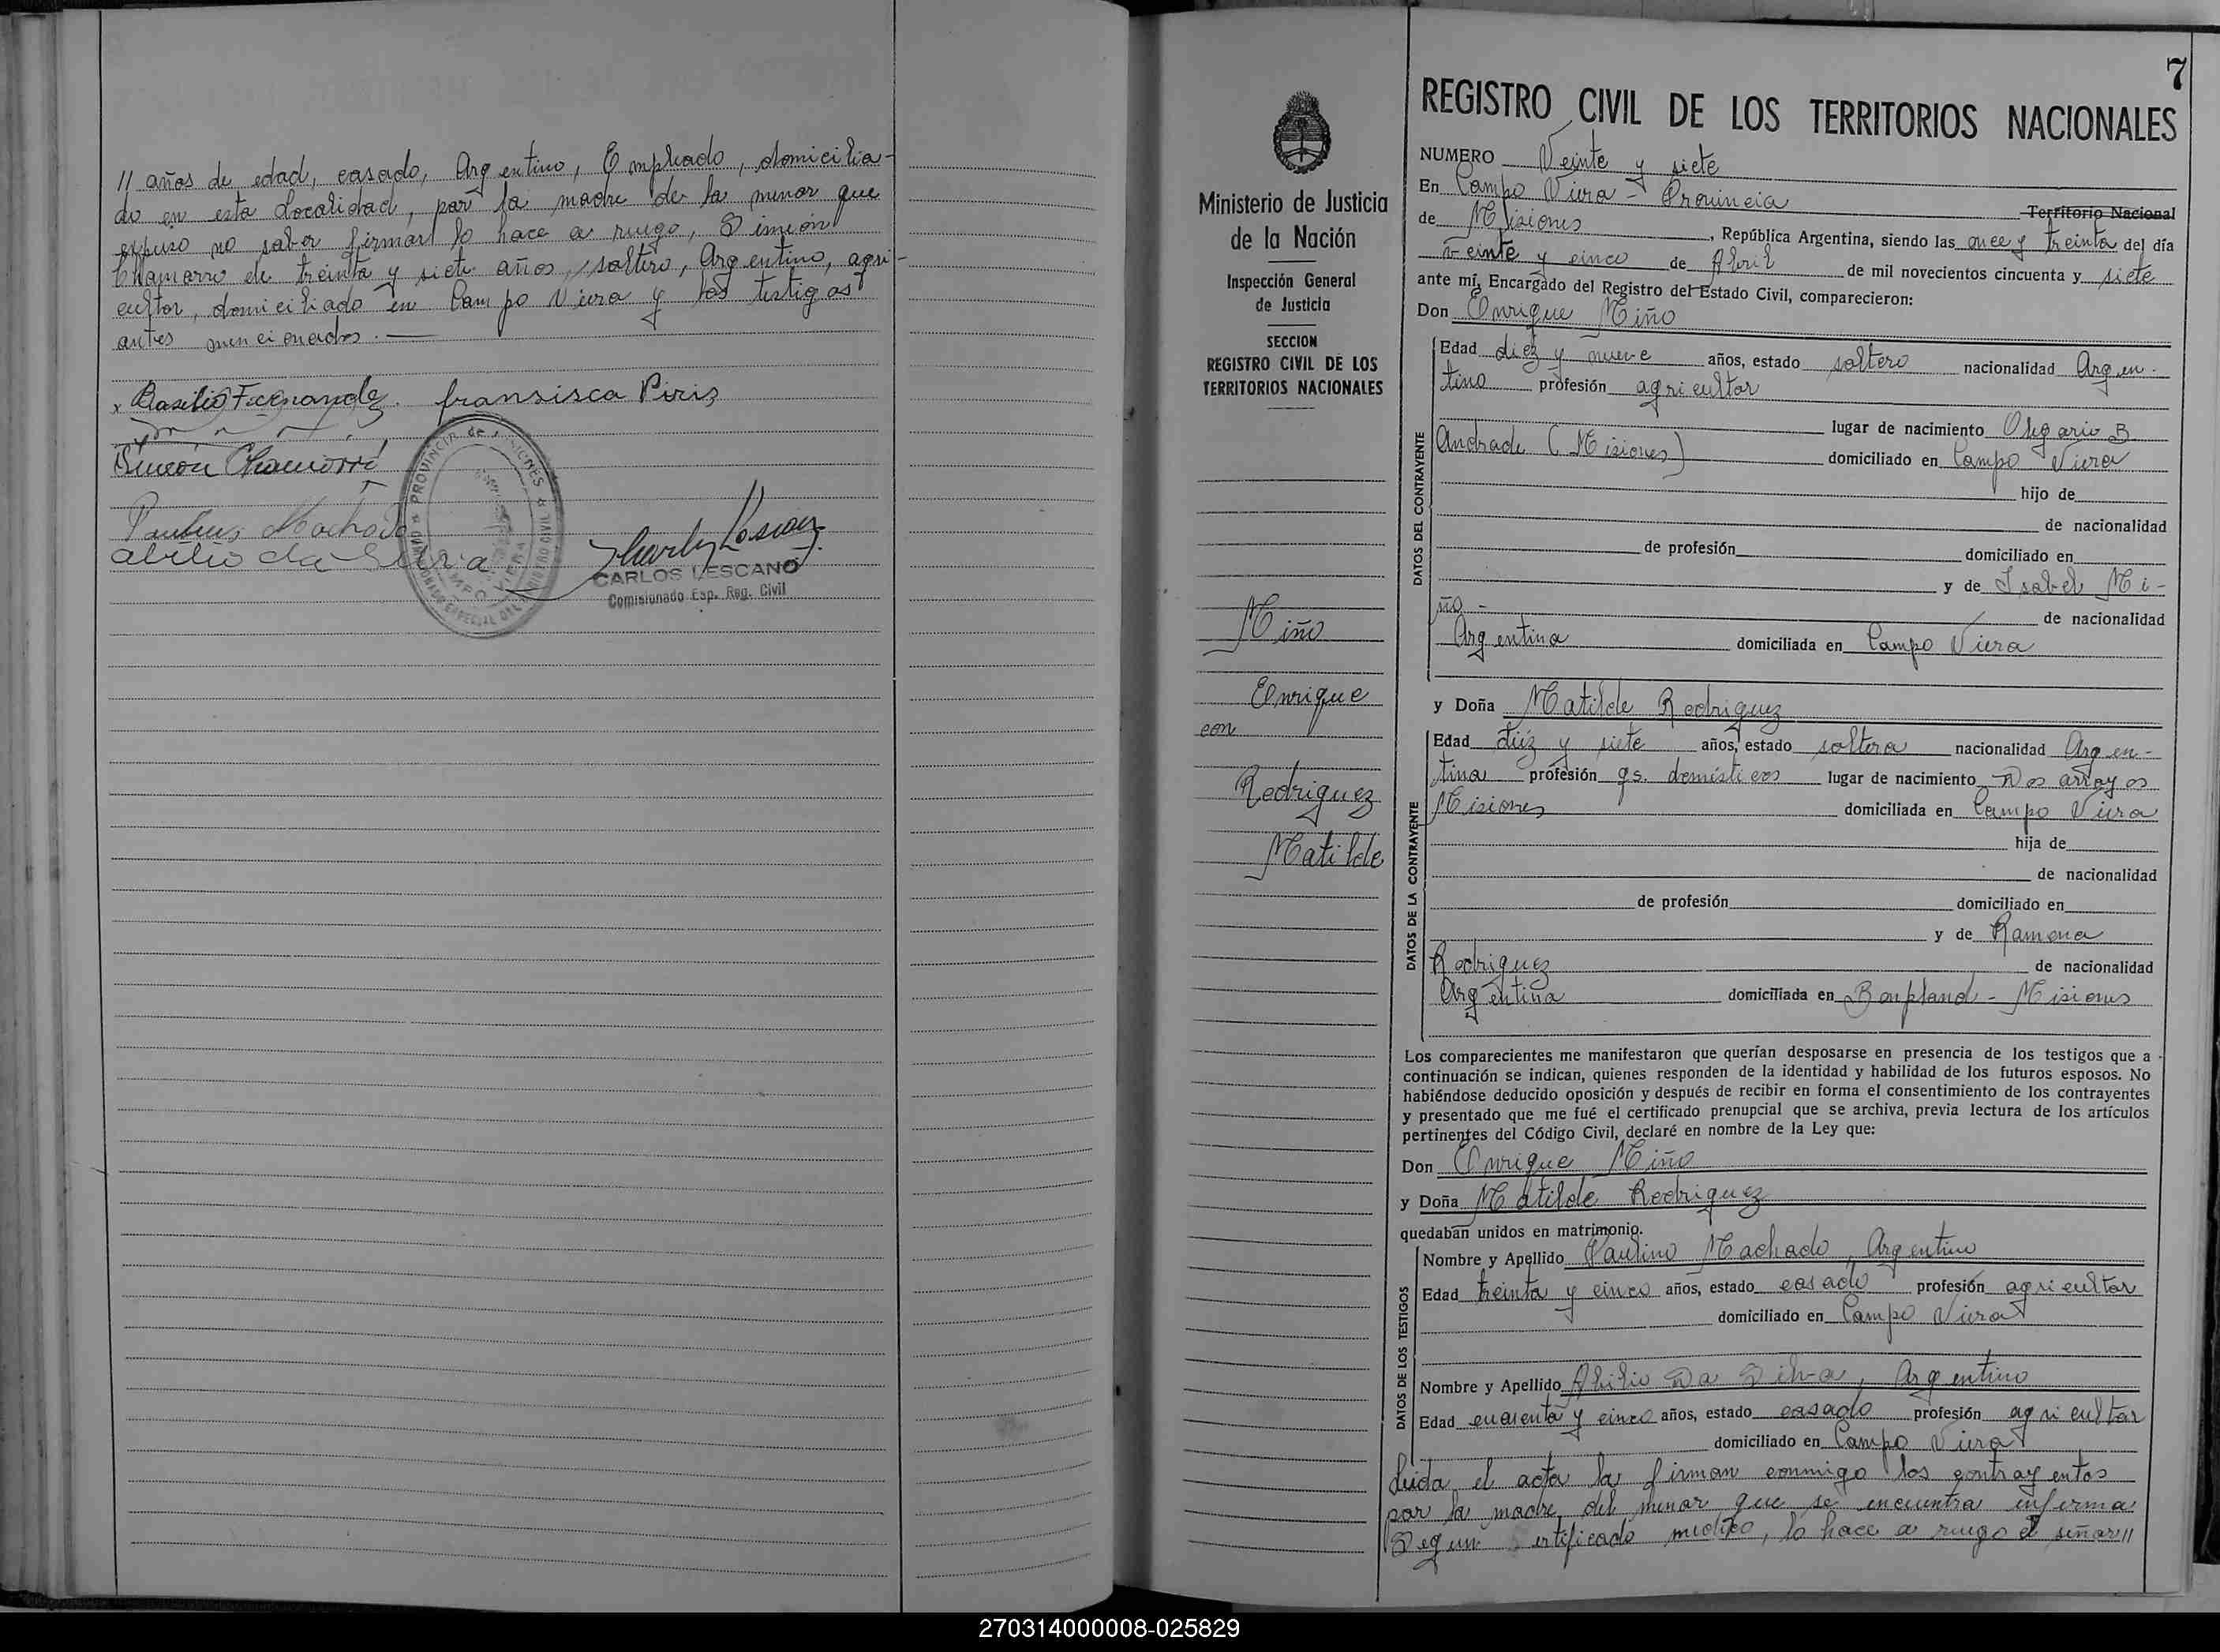 // años de edad, casado, Argentino, Empleado, domicilia-
do en esta Localidad, por la madre de la menor que
expuso no saber firmar lo hace a ruego, Simeón
Chamorro de treinta y siete años, soltero, Argentino, agri-
cultor, domiciliado en Campo Viera y los testigos
antes mencionados.
Basilio Fernandez. fransisca Piris
Simeón Chamorro
Paulino Machado
abilio da Silva
PROVINCIA de MISIONES
CAMPO VIERA
CARLOS LESCANO
Comisionado Esp. Reg. Civil
7
Ministerio de Justicia
de la Nación
Inspección General
de Justicia
SECCION
REGISTRO CIVIL DE LOS
TERRITORIOS NACIONALES
Miño
Enrique
con
Rodriguez
Matilde
REGISTRO CIVIL DE LOS TERRITORIOS NACIONALES
NUMERO Veinte y siete
En Campo Viera - Provincia Territorio Nacional
de Misiones, República Argentina, siendo las once y treinta del día
veinte y cinco de Abril de mil novecientos cincuenta y siete
ante mí, Encargado del Registro del Estado Civil, comparecieron:
Don Enrique Miño
DATOS DEL CONTRAYENTE
Edad diez y nueve años, estado soltero nacionalidad Argen-
tino profesión agricultor
lugar de nacimiento Olegario B
Andrade (Misiones) domiciliado en Campo Viera
hijo de
de nacionalidad
de profesión domiciliado en
y de Isabel Mi-
ño - de nacionalidad
Argentina domiciliada en Campo Viera
y Doña Matilde Rodriguez
DATOS DE LA CONTRAYENTE
Edad diez y siete años, estado soltera nacionalidad Argen-
tina profesión qs. domésticos lugar de nacimiento Dos arroyos
Misiones domiciliada en Campo Viera
hija de
de nacionalidad
de profesión domiciliado en
y de Ramona
Rodriguez de nacionalidad
Argentina domiciliada en Bonpland - Misiones
Los comparecientes me manifestaron que querían desposarse en presencia de los testigos que a
continuación se indican, quienes responden de la identidad y habilidad de los futuros esposos. No
habiéndose deducido oposición y después de recibir en forma el consentimiento de los contrayentes
y presentado que me fué el certificado prenupcial que se archiva, previa lectura de los artículos
pertinentes del Código Civil, declaré en nombre de la Ley que:
Don Enrique Miño
y Doña Matilde Rodriguez
quedaban unidos en matrimonio.
DATOS DE LOS TESTIGOS
Nombre y Apellido Paulino Machado, Argentino
Edad treinta y cinco años, estado casado profesión agricultor
domiciliado en Campo Viera
Nombre y Apellido Abilio Da Silva, Argentino
Edad cuarenta y cinco años, estado casado profesión agricultor
domiciliado en Campo Viera
Leida el acta la firman conmigo los contrayentes
por la madre del menor que se encuentra enferma
Segun certificado medico, lo hace a ruego el señor//
270314000008-025829